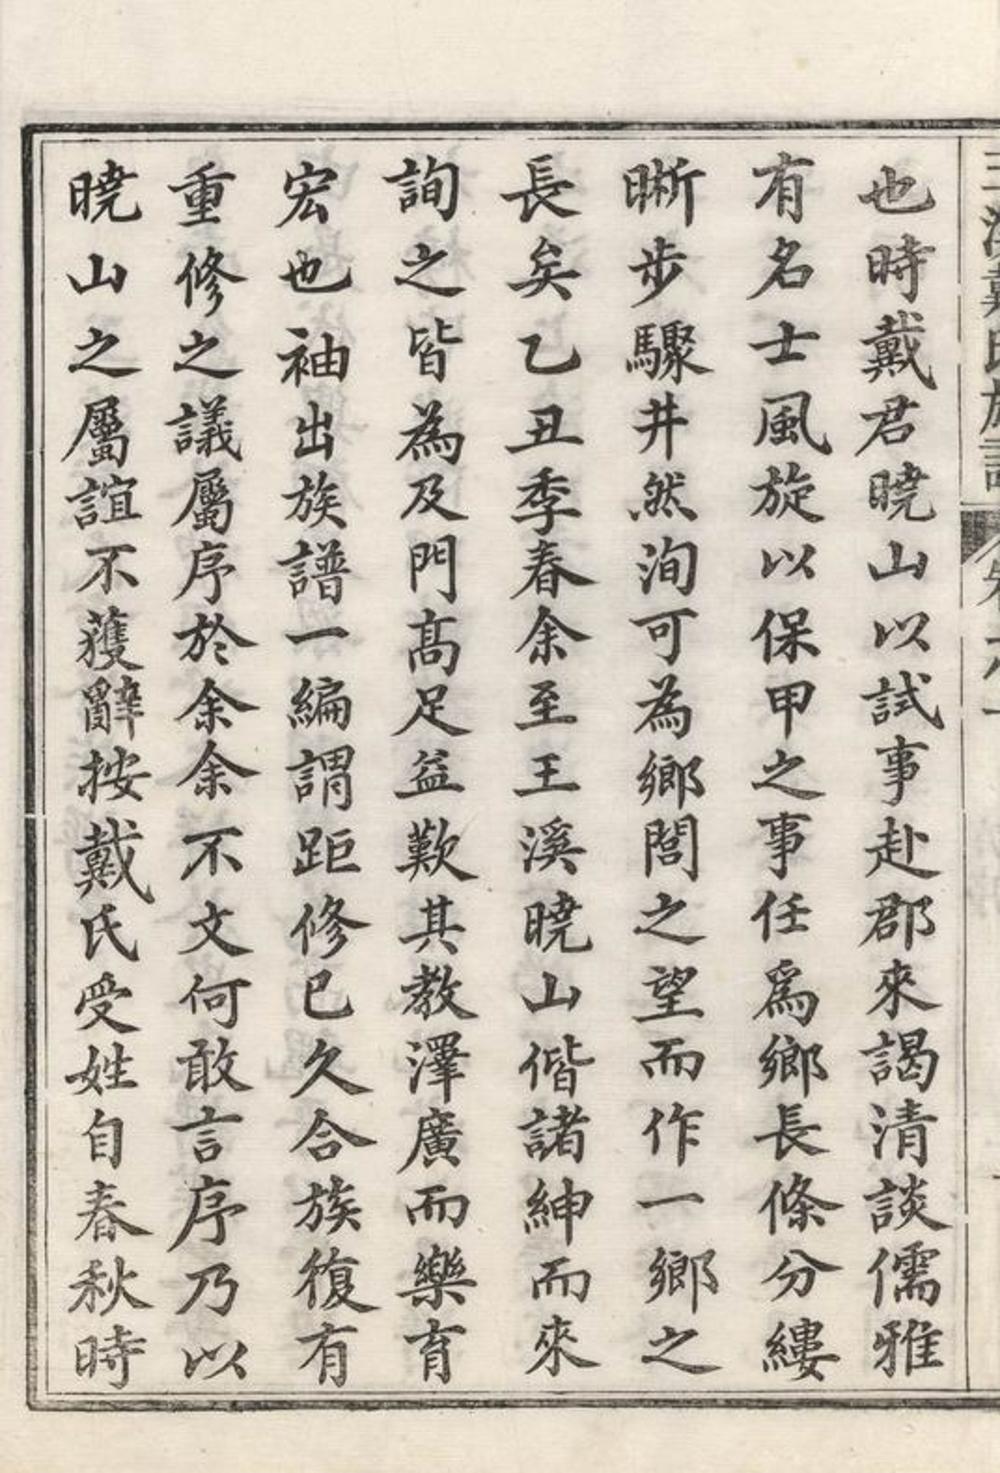 也時戴君曉山以試事赴郡來謁清談儒雅
有名士風旋以保甲之事任爲鄉長條分縷
晰步驟井然洵可為鄉閭之望而作一鄉之
長矣乙丑季春余至王溪曉山偕諸紳而來
詢之皆為及門高足益歎其教澤廣而樂育
宏也袖出族譜一編謂距修已久合族復有
重修之議屬序於余余不文何敢言序乃以
曉山之屬誼不獲辭按戴氏受姓自春秋時